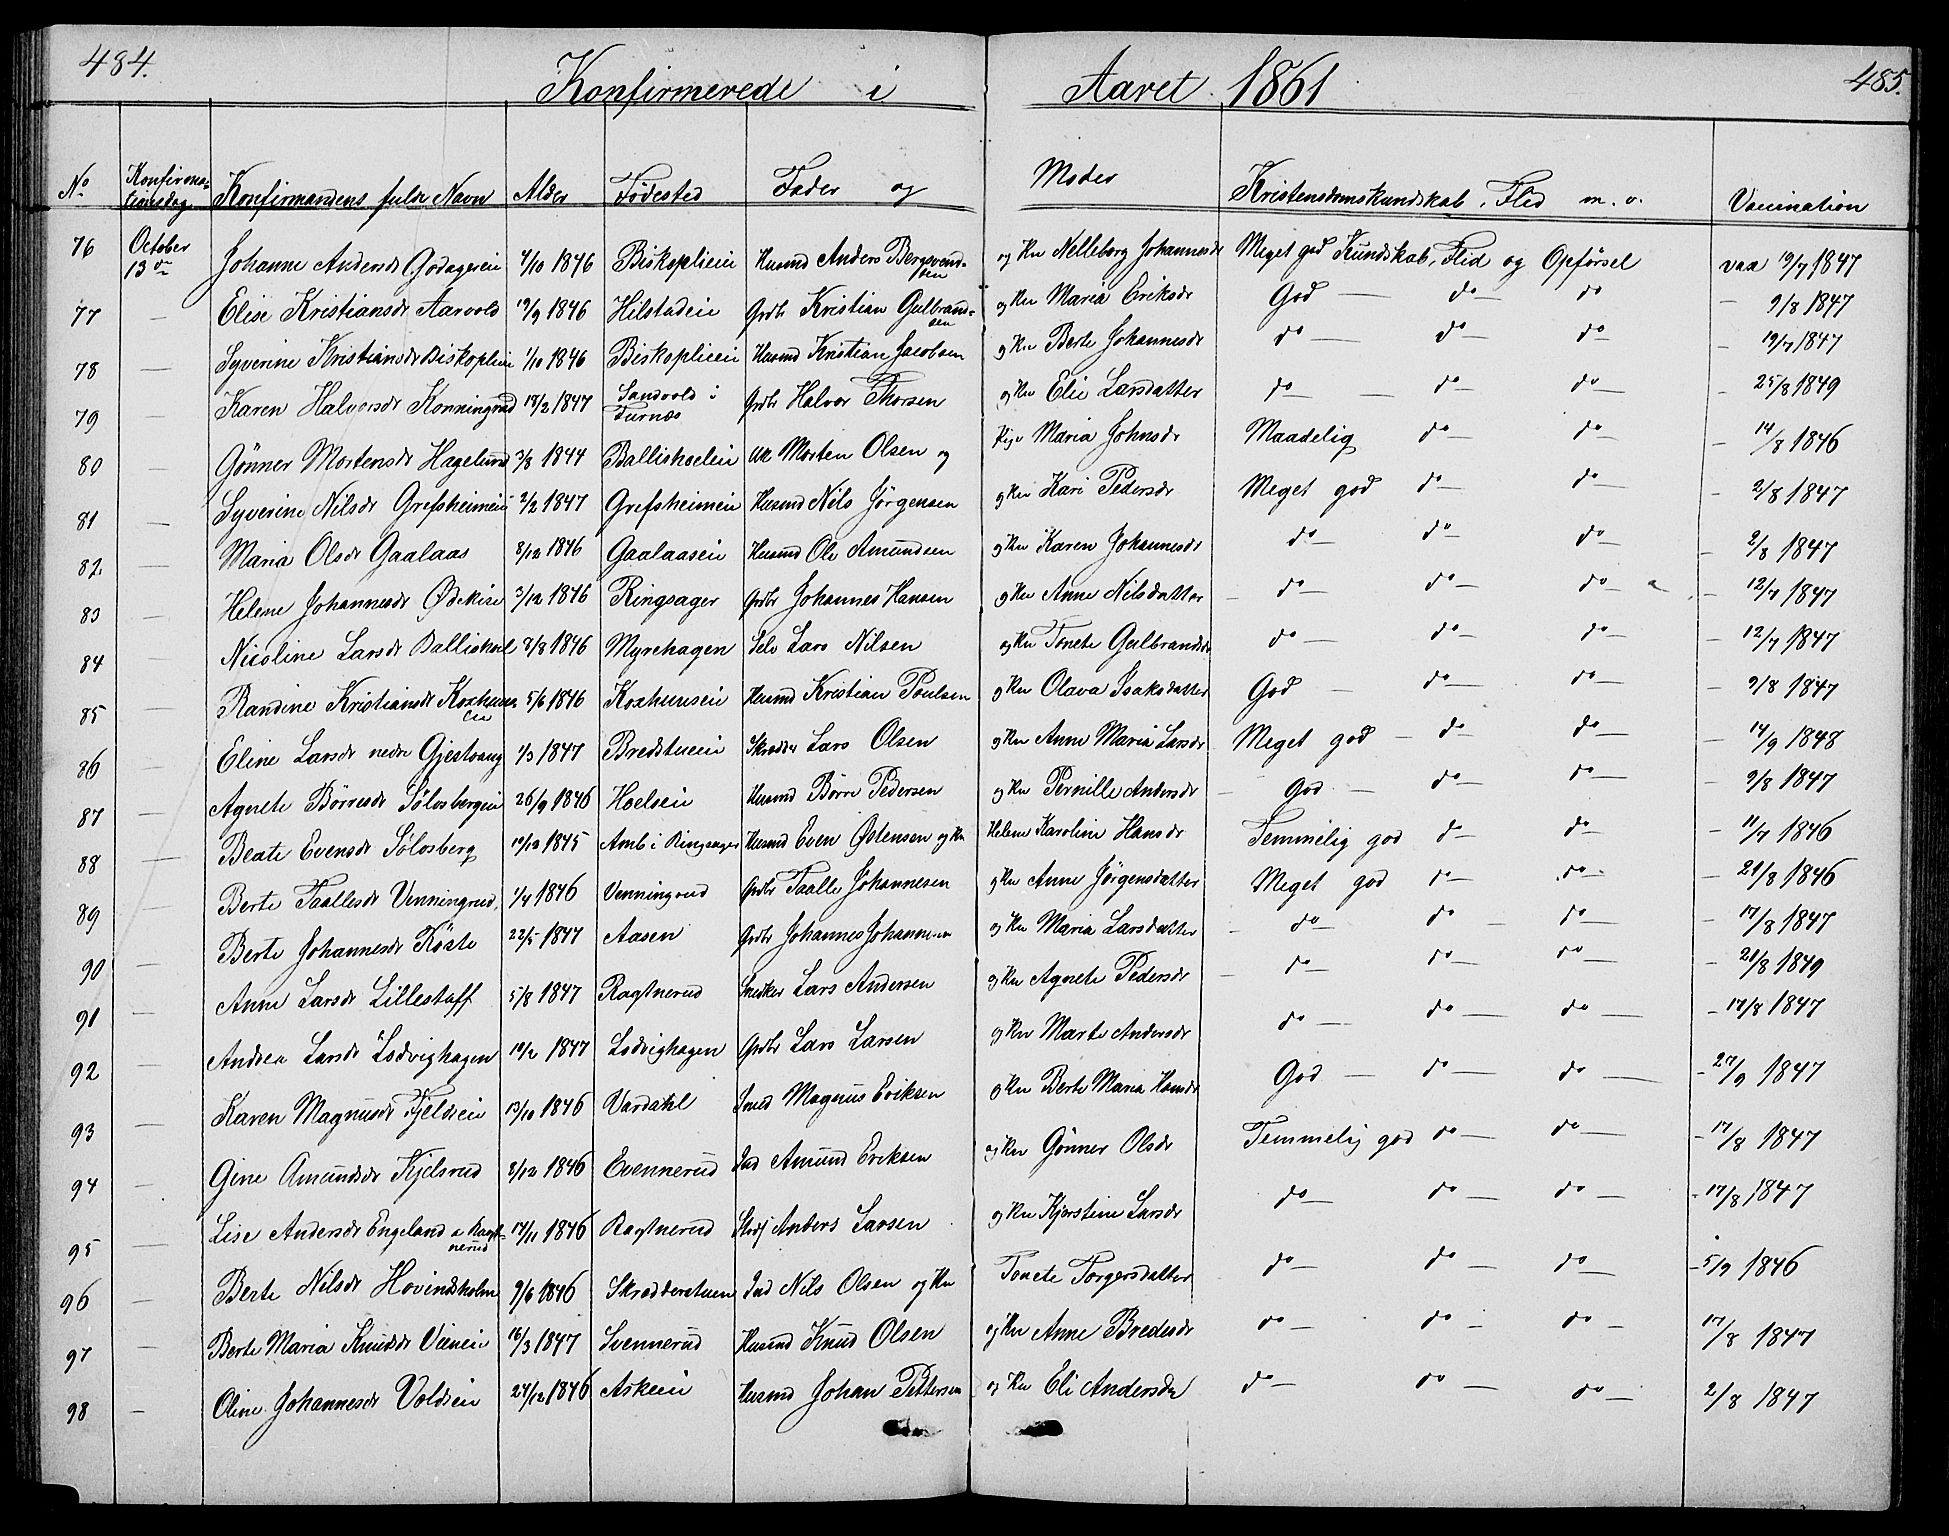 484. Konfirmerede i Aaret 1861 485.
No Konfirmationsdag Konfirmandens fulde Navn Alder Fødested Fader og Moder Kristendomskundskab, Flid m. v. Vaccination
76 October 13de Johanne Andersdr Godagereie 4/10 1846 Biskoplieeie Husmd Anders Bergsvendsen og Kn Nelleborg Johannesdr Meget god Kundskab, Flid og Opførsel vax 19/7 1847
77 — Elise Kristiansdr Aarvold 19/9 1846 Hilstadeie Grdbr Kristian Gulbrandsen og Kn Maria Eriksdr God — do — do — 9/8 1847
78 — Syverine Kristiansdr Biskoplieeie 1/10 1846 Biskoplieeie Husmd Kristian Jacobsen og Kn Berte Johannesdr do — do — do — 19/7 1847
79 — Karen Halvorsdr Konningrud 18/2 1847 Sandvold i Furnæs Grdbr Halvor Thorsen og Kn Elie Larsdatter do — do — do — 25/8 1849
80 — Gønner Mortensdr Hagelund 3/8 1844 Balliskoeleie Morten Olsen og Pige Maria Johnsdr Maadelig do — do — 14/8 1846
81 — Syverine Nilsdr Grefsheimeie 2/2 1847 Grefsheimeie Husmd Nils Jørgensen og Kn Kari Pedersdr Meget god do — do — 2/8 1847
82. — Maria Olsdr Gaalaas 8/12 1846 Gaalaaseie Husmd Ole Amundsen og Kn Karen Johannesdr do — do — do — 2/8 1847
83 — Helene Johannesdr Ødekire 3/12 1846 Ringsager Grdbr Johannes Hansen og Kn Anne Nilsdatter — do — do — do — 12/7 1847
84 — Nicoline Larsdr Balliskoel 3/8 1846 Myrehagen Selv Lars Nilsen og Kn Tonete Gulbrandsdr do — do — do — 12/7 1847
85 — Randine Kristiansdr Koxhuuseie 5/6 1846 Koxhuuseie Husmd Kristian Poulsen og Kn Olava Isaksdatter God — do — do — 9/8 1847
86 — Eline Larsdr nedre Gjestvang 1/3 1847 Bredstueeie Skrædder Lars Olsen og Kn Anne Maria Larsdr Meget god — do — do — 14/9 1848
87 — Agnete Børresdr Sølosbergeie 26/9 1846 Hoelseie Husmd Børre Pedersen og Kn Pernille Andersdr — God — do — do — 9/8 1847
88 — Beate Evensdr Sølosberg 10/10 1845 Amb i Ringsager Husmd Even Østensen og Kn Helene Karoline Hansdr Temmelig god do — do — 11/7 1846
89 — Berte Taallesdr Venningrud 1/4 1846 Venningrud Grdbr Taalle Johannesen og Kn Anne Jørgensdatter Meget god do — do — 21/8 1846
90 — Berte Johannesdr Køste 22/5 1847 Aasen Grdbr Johannes Johannesen og Kn Maria Larsdatter — do — do — do — 17/8 1847
91 — Anne Larsdr Lillestaff 5/8 1847 Ragtnerud Snedker Lars Andersen og Kn Agnete Pedersdr — do — do — do — 21/8 1849
92 — Andrea Larsdr Lodvighagen 10/2 1847 Lodvighagen Grdbr Lars Larsen og Kn Marte Andersdr do — do — do — 17/8 1847
93 — Karen Magnusdr Fjeldseie 13/10 1846 Vardahl Smed Magnus Eriksen og Kn Berte Maria Hansdr God — do — do — 27/9 1847
94 — Gine Amundsdr Kjelsrud 2/12 1846 Evennerud Ind Amund Eriksen og Kn Gønner Olsdr Temmelig god do — do — 17/8 1847
95 — Lise Andersdr Engeland a Ragtnerud 17/11 1846 Ragtnerud Anders Larsen og Kn Kjerstine Larsdr do — do — do — 17/8 1847
96 — Berte Nilsdr Hovindsholm 9/6 1846 Skrædderstuen Ind Nils Olsen og Kn Tonete Torgersdatter do — do — do — 5/9 1846
97 — Berte Maria Knudsdr Vieneie 16/3 1847 Svennerud Husmd Knud Olsen og Kn Anne Bredesdr do — do — do — 17/8 1847
98 — Oline Johannesdr Voldseie 24/12 1846 Askeeie Husmd Johan Pettersen og Kn Eli Andersdr do — do — do — 2/8 1847